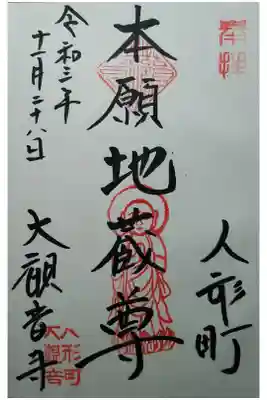 奉拝
人形町
本願地蔵尊
大観音寺
人形町
大観音
令和三年
十一月二十八日